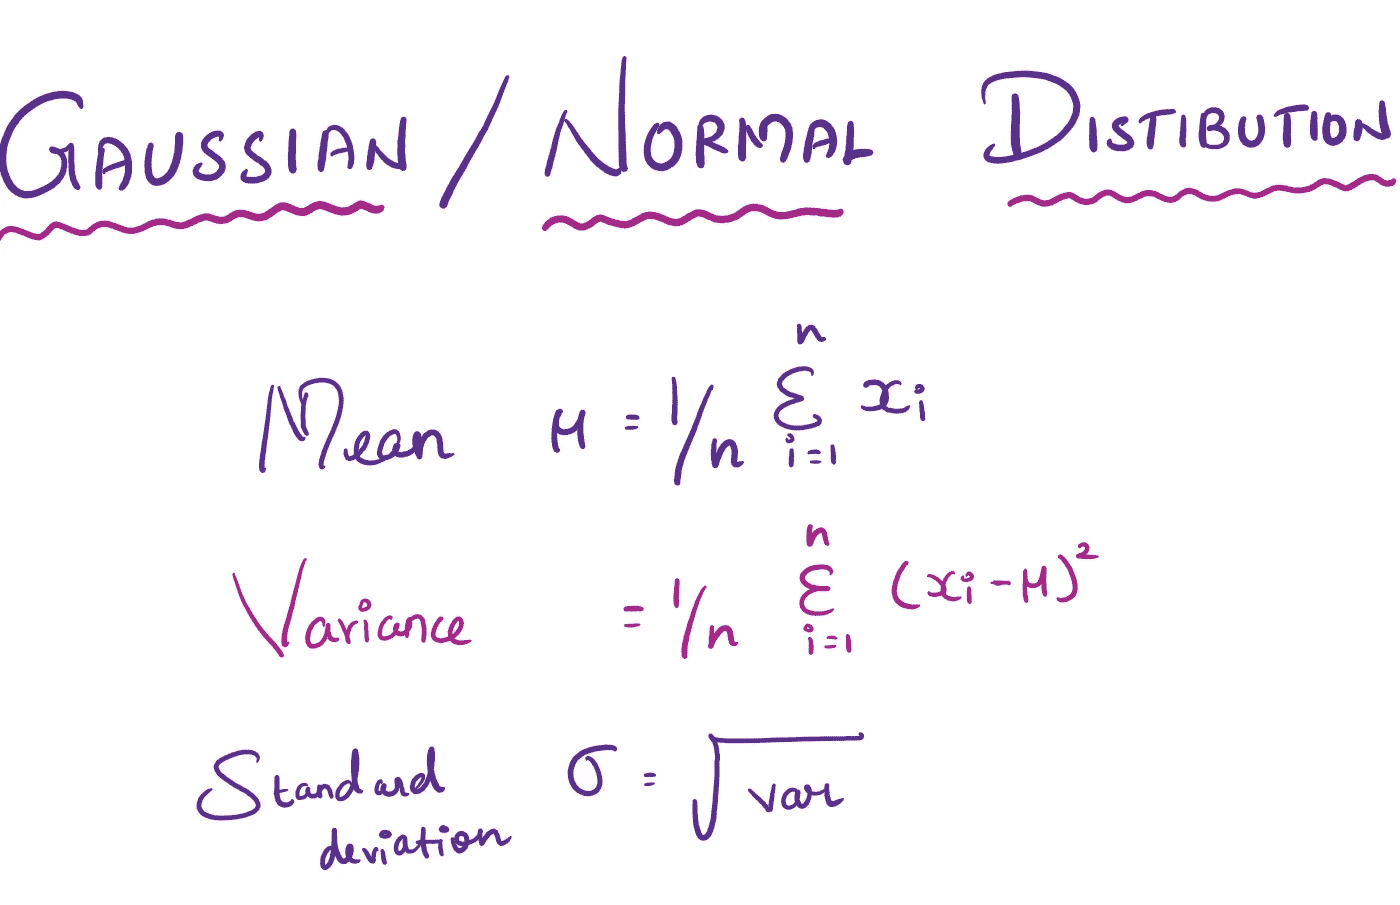 GAUSSIAN / NORMAL DISTIBUTION
Mean μ = 1/n Σ_{i=1}^{n} xi
Variance = 1/n Σ_{i=1}^{n} (xi - μ)²
Standard deviation σ = √var